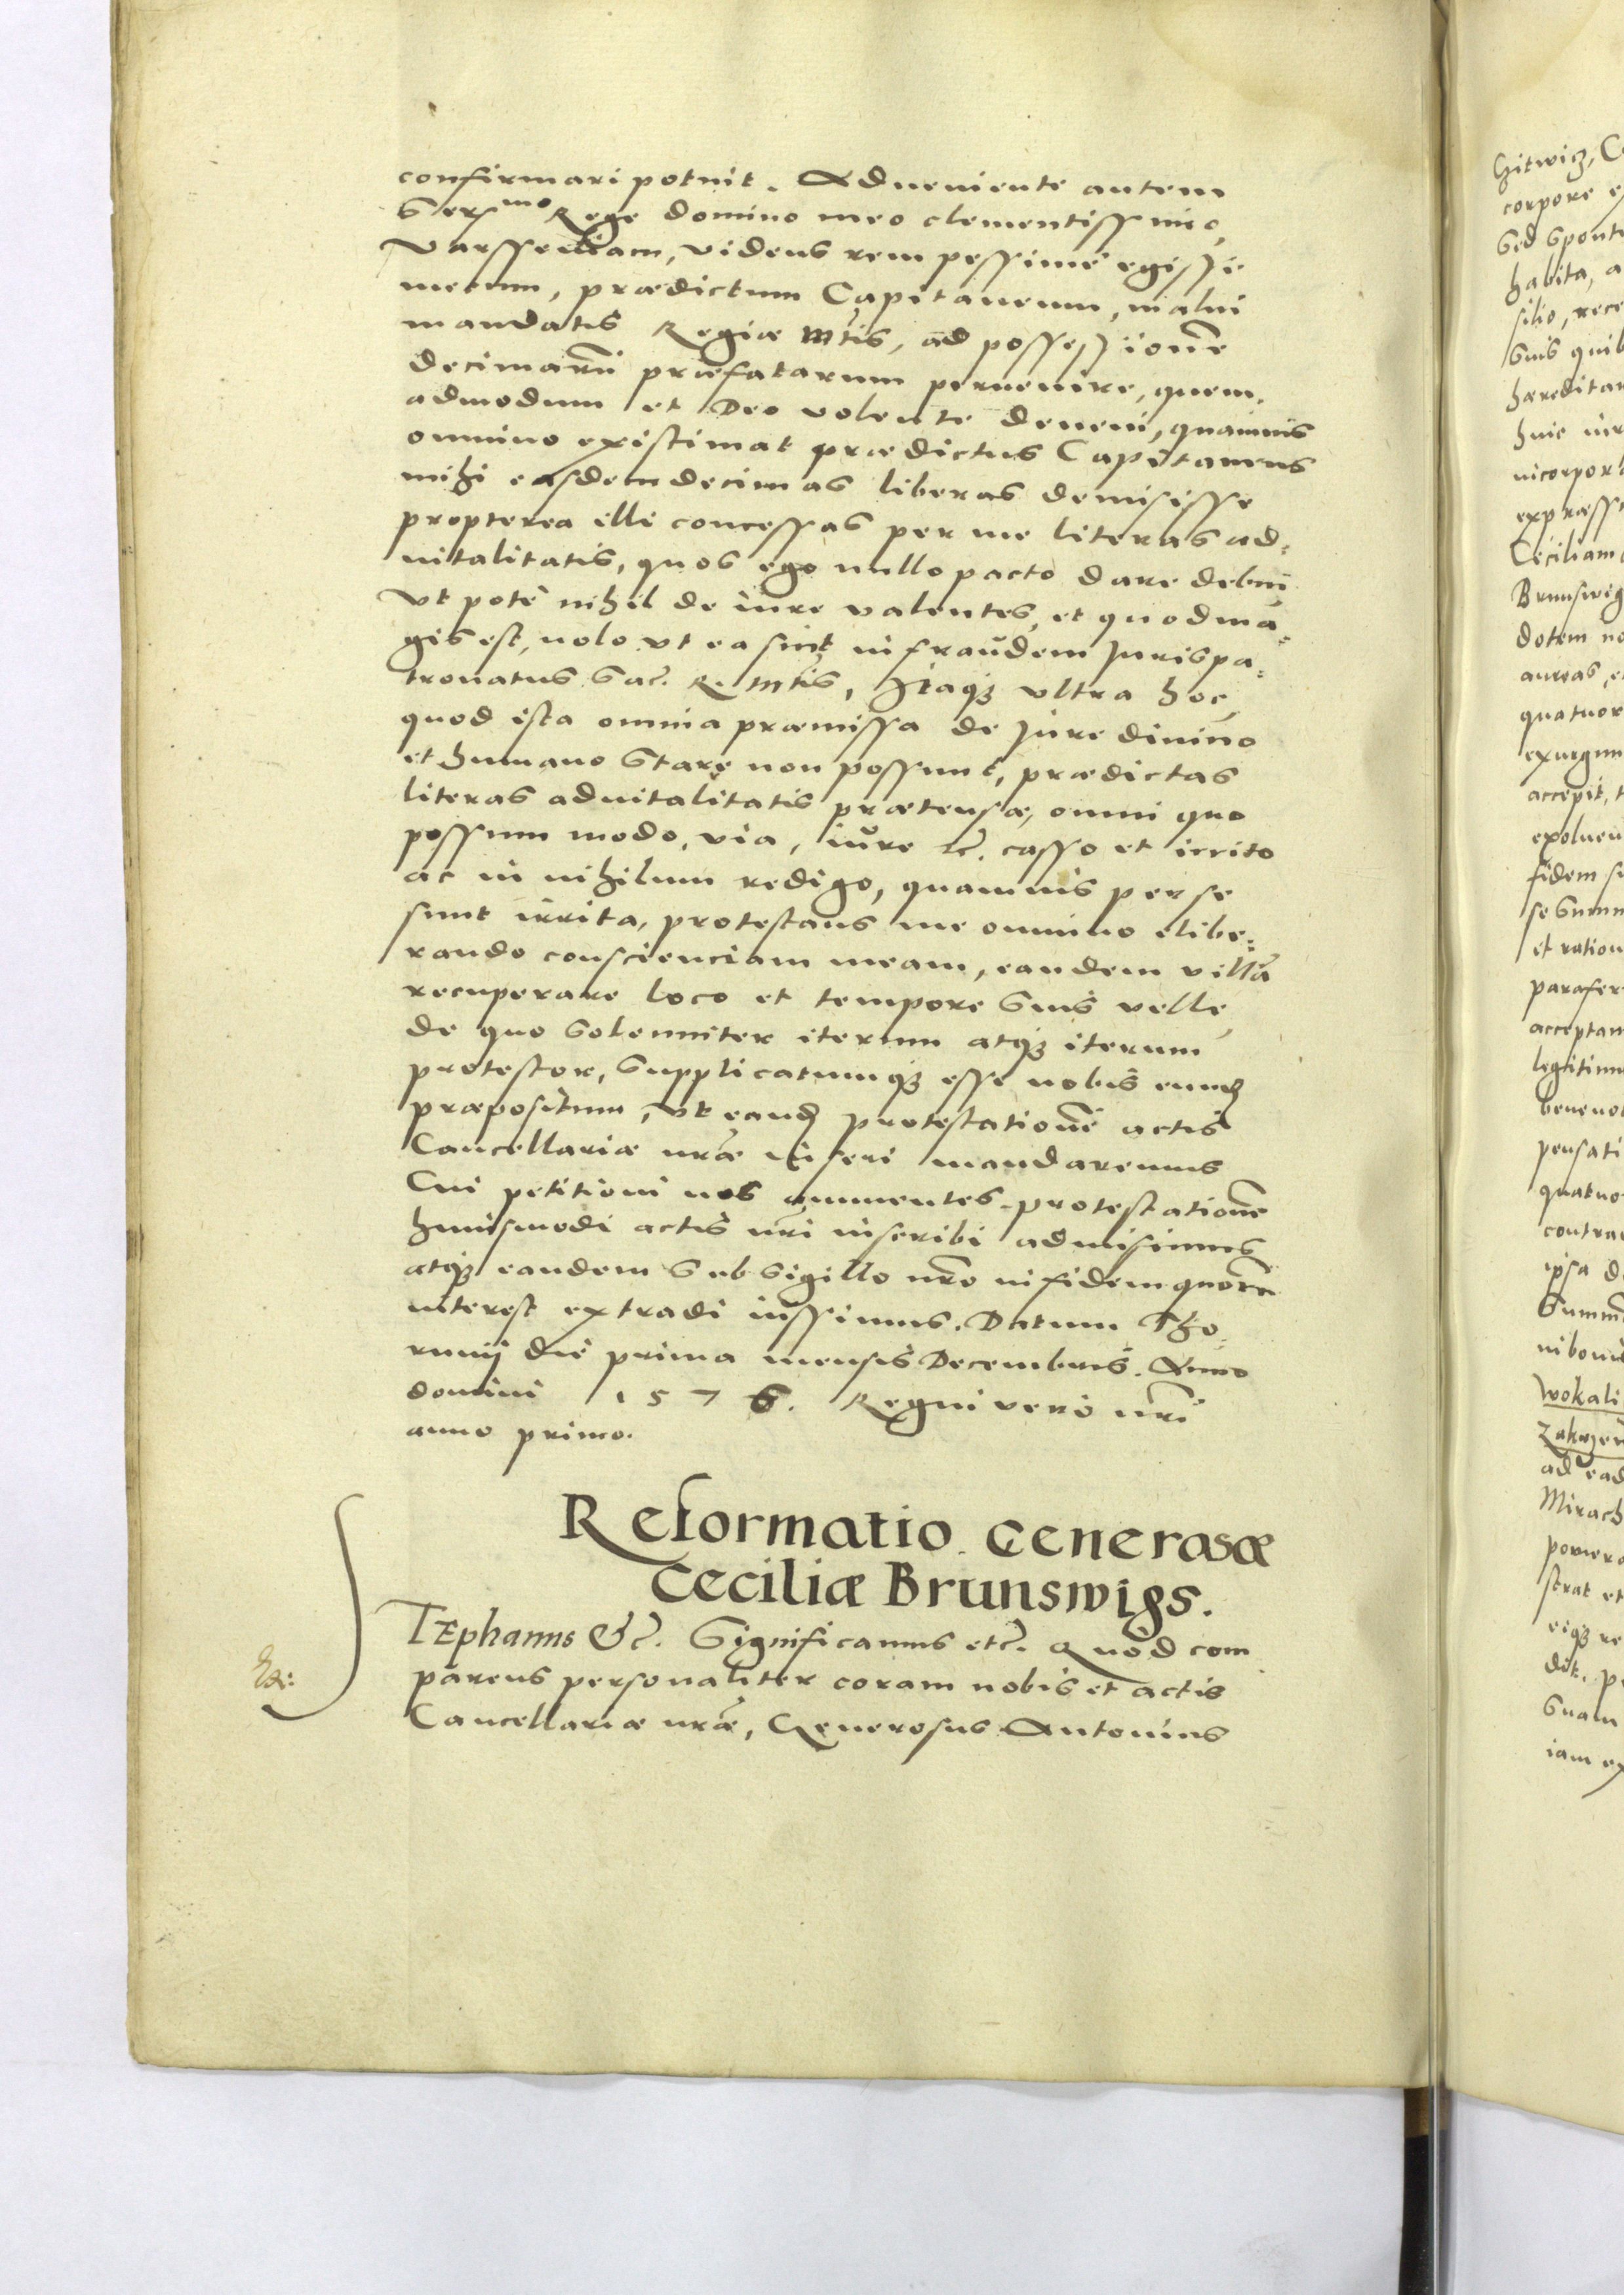 confirmari potuit. Adueniente autem
Sermo Rege domino meo clementissimo,
Varsseuiam, videns rem pessimè egisse
mecum, prædictum Capitaneum, malui
mandatis Regiæ Mtis, ad possessionē
decimarū præfatarum peruenire, quem,
admodum et Deo volente deueni, quamuis
omnino existimat prædictus Capitaneus
mihi easdem decimas liberas demisisse
propterea illi concessas per me literas ad=
uitalitatis, quos ego nullo pacto dare debui
Vt potè nihil de iure valentes, et quod ma=
gis est, nolo vt ea sint in fraudem Iurispa=
tronatus Sac. R. Mtis, Itaqȝ vltra hoc
quod ista omnia præmissa de Iure diuino
et humano stare non possunt, prædictas
literas aduitalitatis prætensæ, omni quo
possum modo, via, iure etc. casso et irrito
ac in nihilum redigo, quamuis per se
sunt irrita, protestans me omnino elibe=
rando conscienciam meam, eandem villā
recuperare loco et tempore suis velle
de quo solenniter iterum atqȝ iterum
protestor, Supplicatumqȝ esse nobis eund
præpositum, vt eand protestationē actis
Cancellariæ nræ inseri mandaremus
Cui petitioni nos annuentes protestationē
huiusmodi actis nri inscribi admisimus
atqȝ eandem sub sigillo nro in fidem quorū
interest extradi iussimus. Datum Tho
runij die prima mensis Decembris. Anno
domini 1576. Regni verò nri
anno primo.
Reformatio Generosæ
Ceciliæ Brunswigs.
STEphanus &c. Significamus etc. Quòd com
parens personaliter coram nobis et actis
Cancellariæ nræ, Generosus Antonius
corpore
Sed sponte
habita, a
silio, rece
suis quib
hæreditar
huic
expræss
Ceciliam
Brunswig
dotem no
aureas, et
quatuor
accepit, t
fidem su
et ration
parafer
acceptam
pensati
quatuo
contra
ipsa d
Summ
Wokali
ad ead
Mirach
strat et
eiqȝ re
dit. p
Suam
iam ex